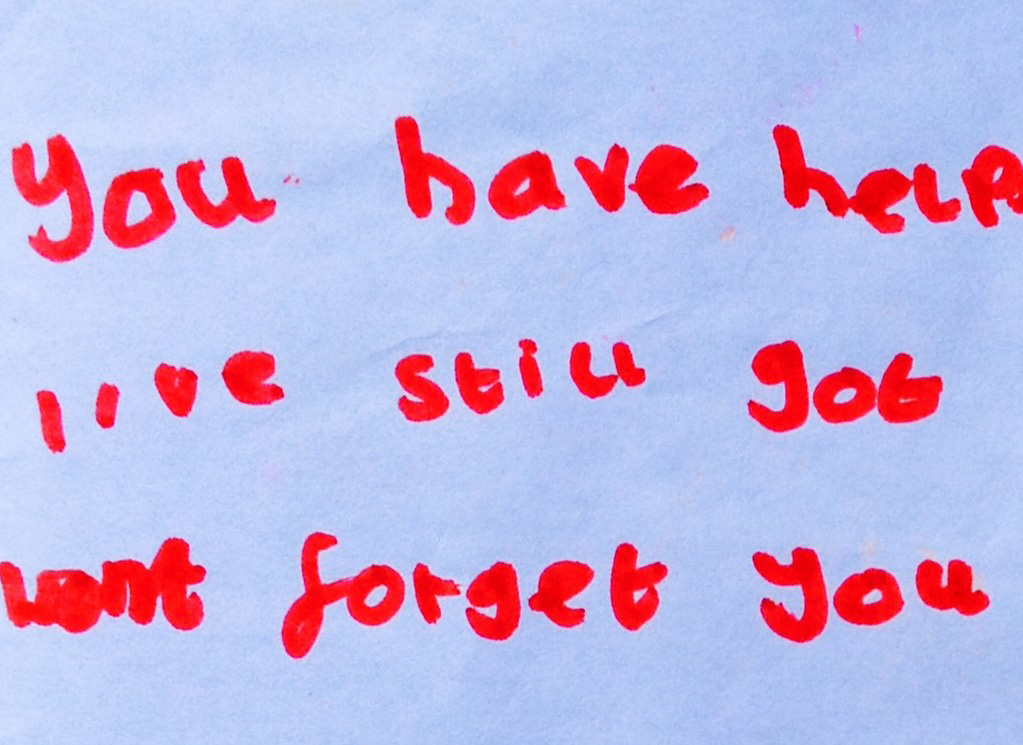 You have help
I've still got
wont forget you